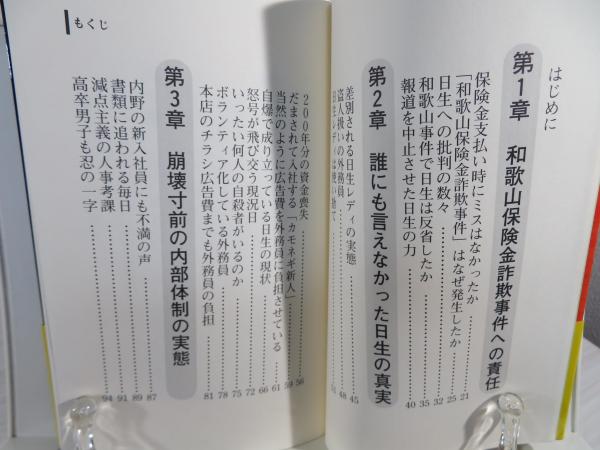 もくじ
はじめに
第1章 和歌山保険金詐欺事件への責任
保険金支払い時にミスはなかったか……21
「和歌山保険金詐欺事件」はなぜ発生したか……25
日生への批判の数々……32
和歌山事件で日生は反省したか……35
報道を中止させた日生の力……40
第2章 誰にも言えなかった日生の真実
差別される日生レディの実態……45
盗人扱いの外務員……48
日生レディは使い捨て……51
200年分の資金喪失……56
だまされて入社する「カモネギ新人」……59
当然のように広告費を外務員に負担させている……61
自爆で成り立っている日生の現状……66
怒号が飛び交う現況日……72
いったい何人の自殺者がいるのか……75
ボランティア化している外務員……78
本店のチラシ広告費までも外務員の負担……81
第3章 崩壊寸前の内部体制の実態
内野の新入社員にも不満の声……87
書類に追われる毎日……89
減点主義の人事考課……91
高卒男子も忍の一字……94